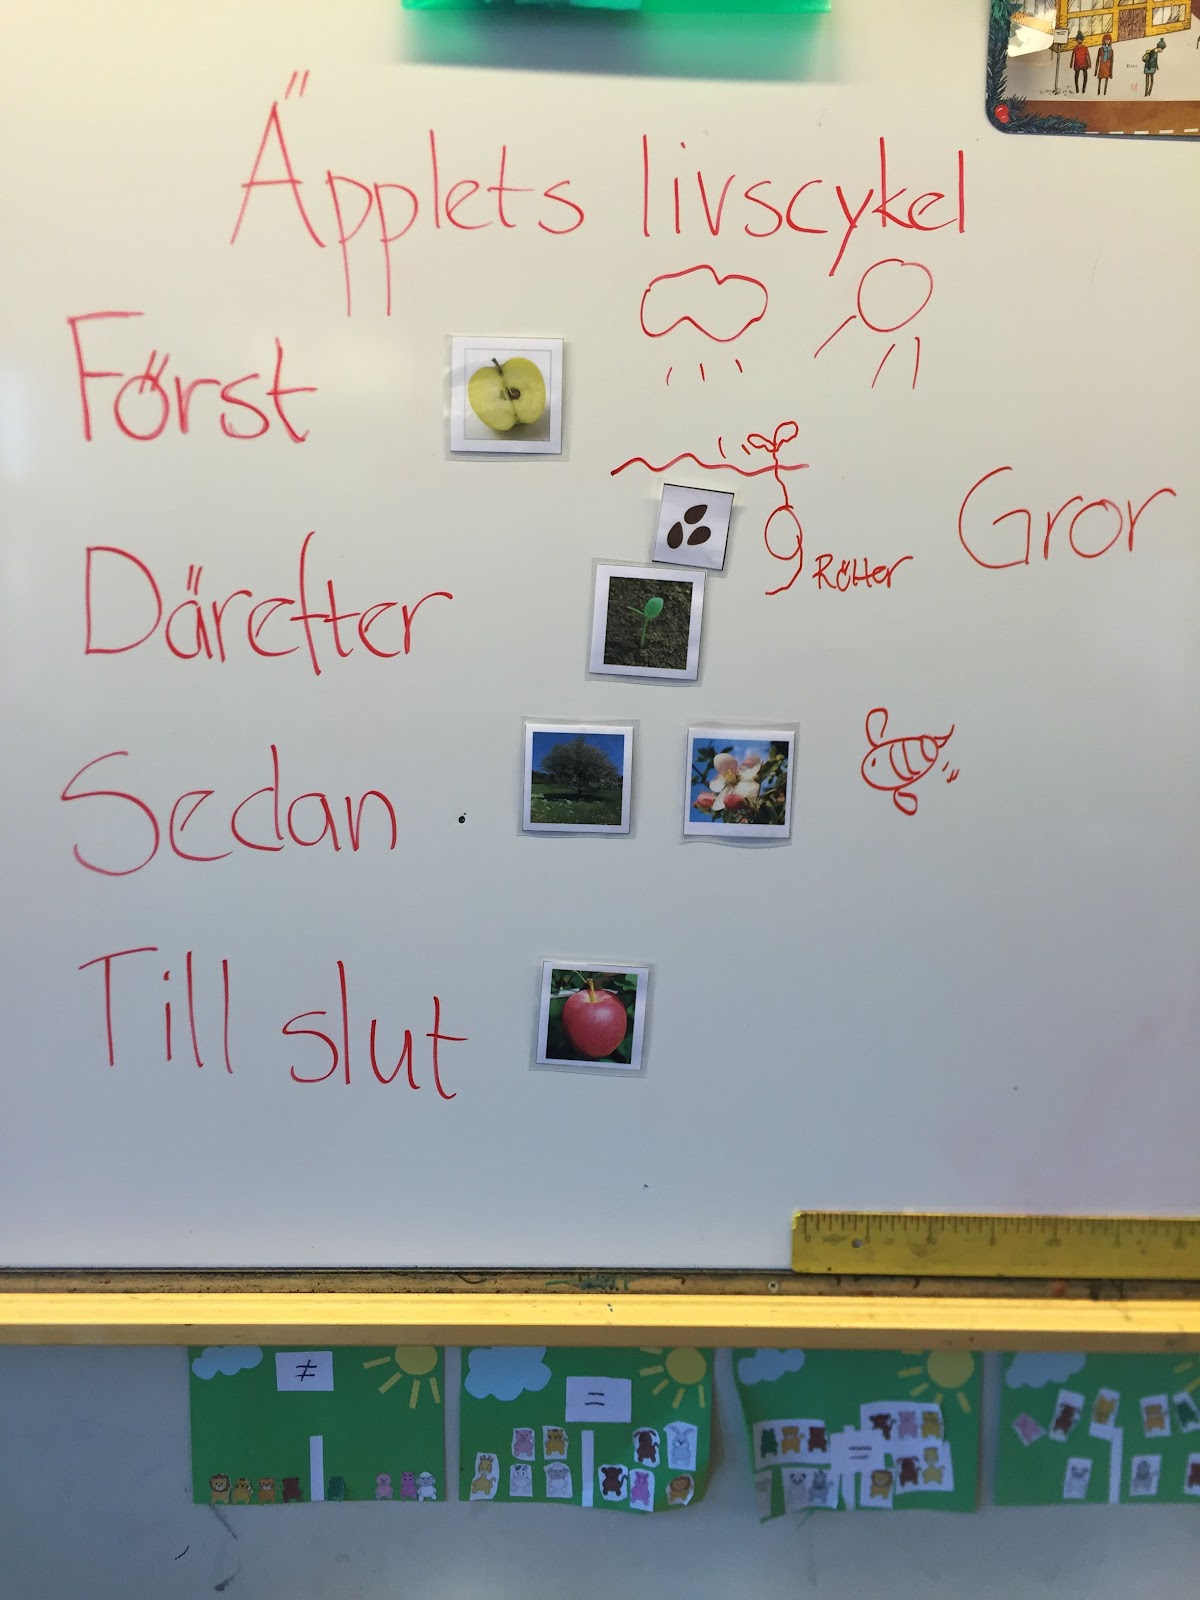 Äpplets livscykel
Först
Gror
Rötter
Därefter
Sedan
Till slut
≠
=
=